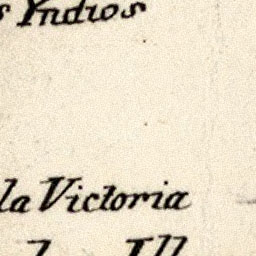 s Yndios
la Victoria